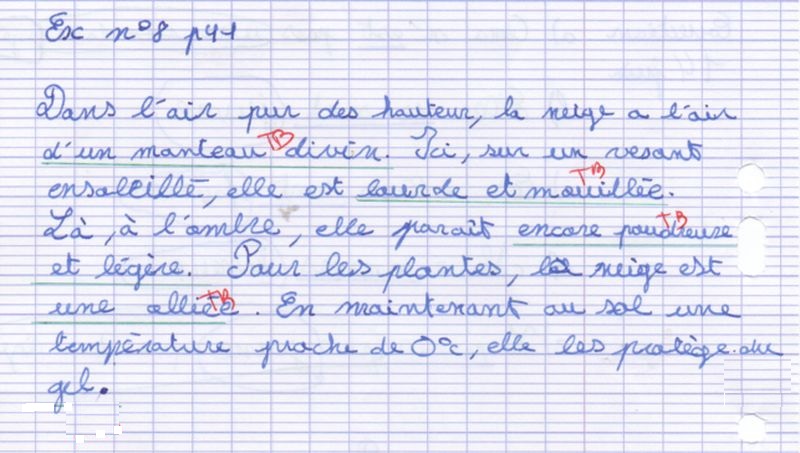 Ex n°8 p41
Dans l'air pur des hauteur, la neige a l'air
d'un manteau TB divin. Ici, sur un vesant
ensoleillé, elle est lourde et mouillée. TB
Là, à l'ombre, elle paraît encore poudreuse TB
et légère. Pour les plantes, la neige est
une alliée TB. En maintenant au sol une
température proche de 0°c, elle les protège du
gel.